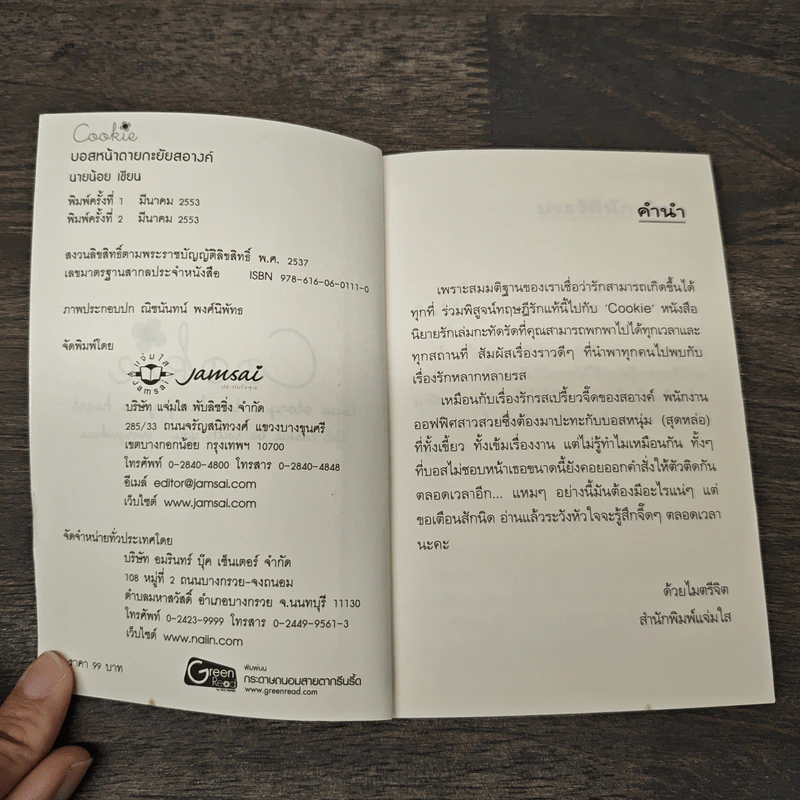 Cookie
บอสหน้าตายกะยัยสอางค์
นายน้อย เขียน
พิมพ์ครั้งที่ 1 มีนาคม 2553
พิมพ์ครั้งที่ 2 มีนาคม 2553
สงวนลิขสิทธิ์ตามพระราชบัญญัติลิขสิทธิ์ พ.ศ. 2537
เลขมาตรฐานสากลประจำหนังสือ ISBN 978-616-06-0111-0
ภาพประกอบปก ณิชนันทน์ พงศ์นิพัทธ
จัดพิมพ์โดย
แจ่มใส
Jamsai
jamsai
ประทับใจคุณ
บริษัท แจ่มใส พับลิชชิ่ง จำกัด
285/33 ถนนจรัญสนิทวงศ์ แขวงบางขุนศรี
เขตบางกอกน้อย กรุงเทพฯ 10700
โทรศัพท์ 0-2840-4800 โทรสาร 0-2840-4848
อีเมล์ editor@jamsai.com
เว็บไซต์ www.jamsai.com
จัดจำหน่ายทั่วประเทศโดย
บริษัท อมรินทร์ บุ๊ค เซ็นเตอร์ จำกัด
108 หมู่ที่ 2 ถนนบางกรวย-จงถนอม
ตำบลมหาสวัสดิ์ อำเภอบางกรวย จ.นนทบุรี 11130
โทรศัพท์ 0-2423-9999 โทรสาร 0-2449-9561-3
เว็บไซต์ www.naiin.com
ราคา 99 บาท
Green
Read
พิมพ์บน
กระดาษถนอมสายตากรีนรี้ด
www.greenread.com
คำนำ
เพราะสมมติฐานของเราเชื่อว่ารักสามารถเกิดขึ้นได้
ทุกที่ ร่วมพิสูจน์ทฤษฎีรักแท้นี้ไปกับ ‘Cookie’ หนังสือ
นิยายรักเล่มกะทัดรัดที่คุณสามารถพกพาไปได้ทุกเวลาและ
ทุกสถานที่ สัมผัสเรื่องราวดีๆ ที่นำพาทุกคนไปพบกับ
เรื่องรักหลากหลายรส
เหมือนกับเรื่องรักรสเปรี้ยวจี๊ดของสอางค์ พนักงาน
ออฟฟิศสาวสวยซึ่งต้องมาปะทะกับบอสหนุ่ม (สุดหล่อ)
ที่ทั้งเขี้ยว ทั้งเข้มเรื่องงาน แต่ไม่รู้ทำไมเหมือนกัน ทั้งๆ
ที่บอสไม่ชอบหน้าเธอขนาดนี้ยังคอยออกคำสั่งให้ตัวติดกัน
ตลอดเวลาอีก... แหมๆ อย่างนี้มันต้องมีอะไรแน่ๆ แต่
ขอเตือนสักนิด อ่านแล้วระวังหัวใจจะรู้สึกจี๊ดๆ ตลอดเวลา
นะคะ
ด้วยไมตรีจิต
สำนักพิมพ์แจ่มใส